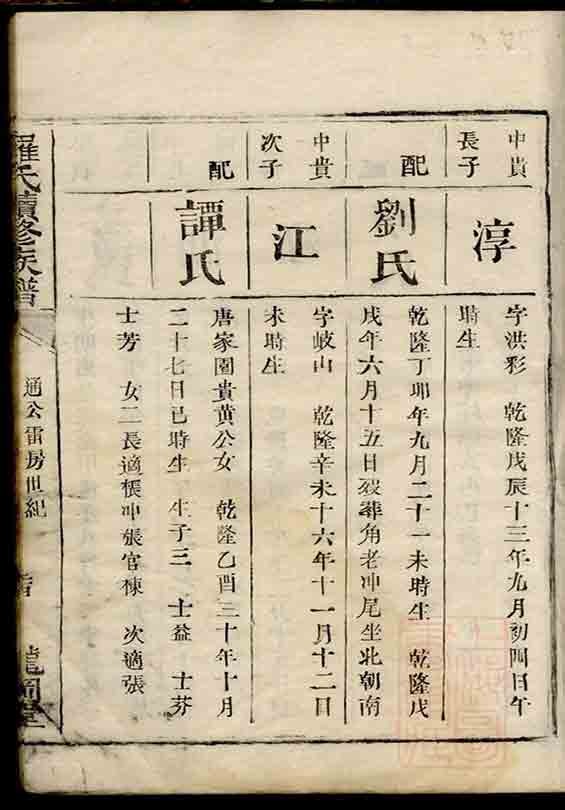 中貴
長子
淳
字洪彩 乾隆戊辰十三年九月初四日午
時生
配
劉氏
乾隆丁卯年九月二十一未時生 乾隆戊
戌年六月十五日歿葬角老冲尾坐北朝南
中貴
次子
江
字岐山 乾隆辛未十六年十一月十二日
未時生
配
譚氏
唐家園貴黄公女 乾隆乙酉三十年十月
二十七日巳時生 生子三 士益 士芬
士芳 女二長適棖冲張官棟 次適張
羅氏續修族譜
通公雷房世紀